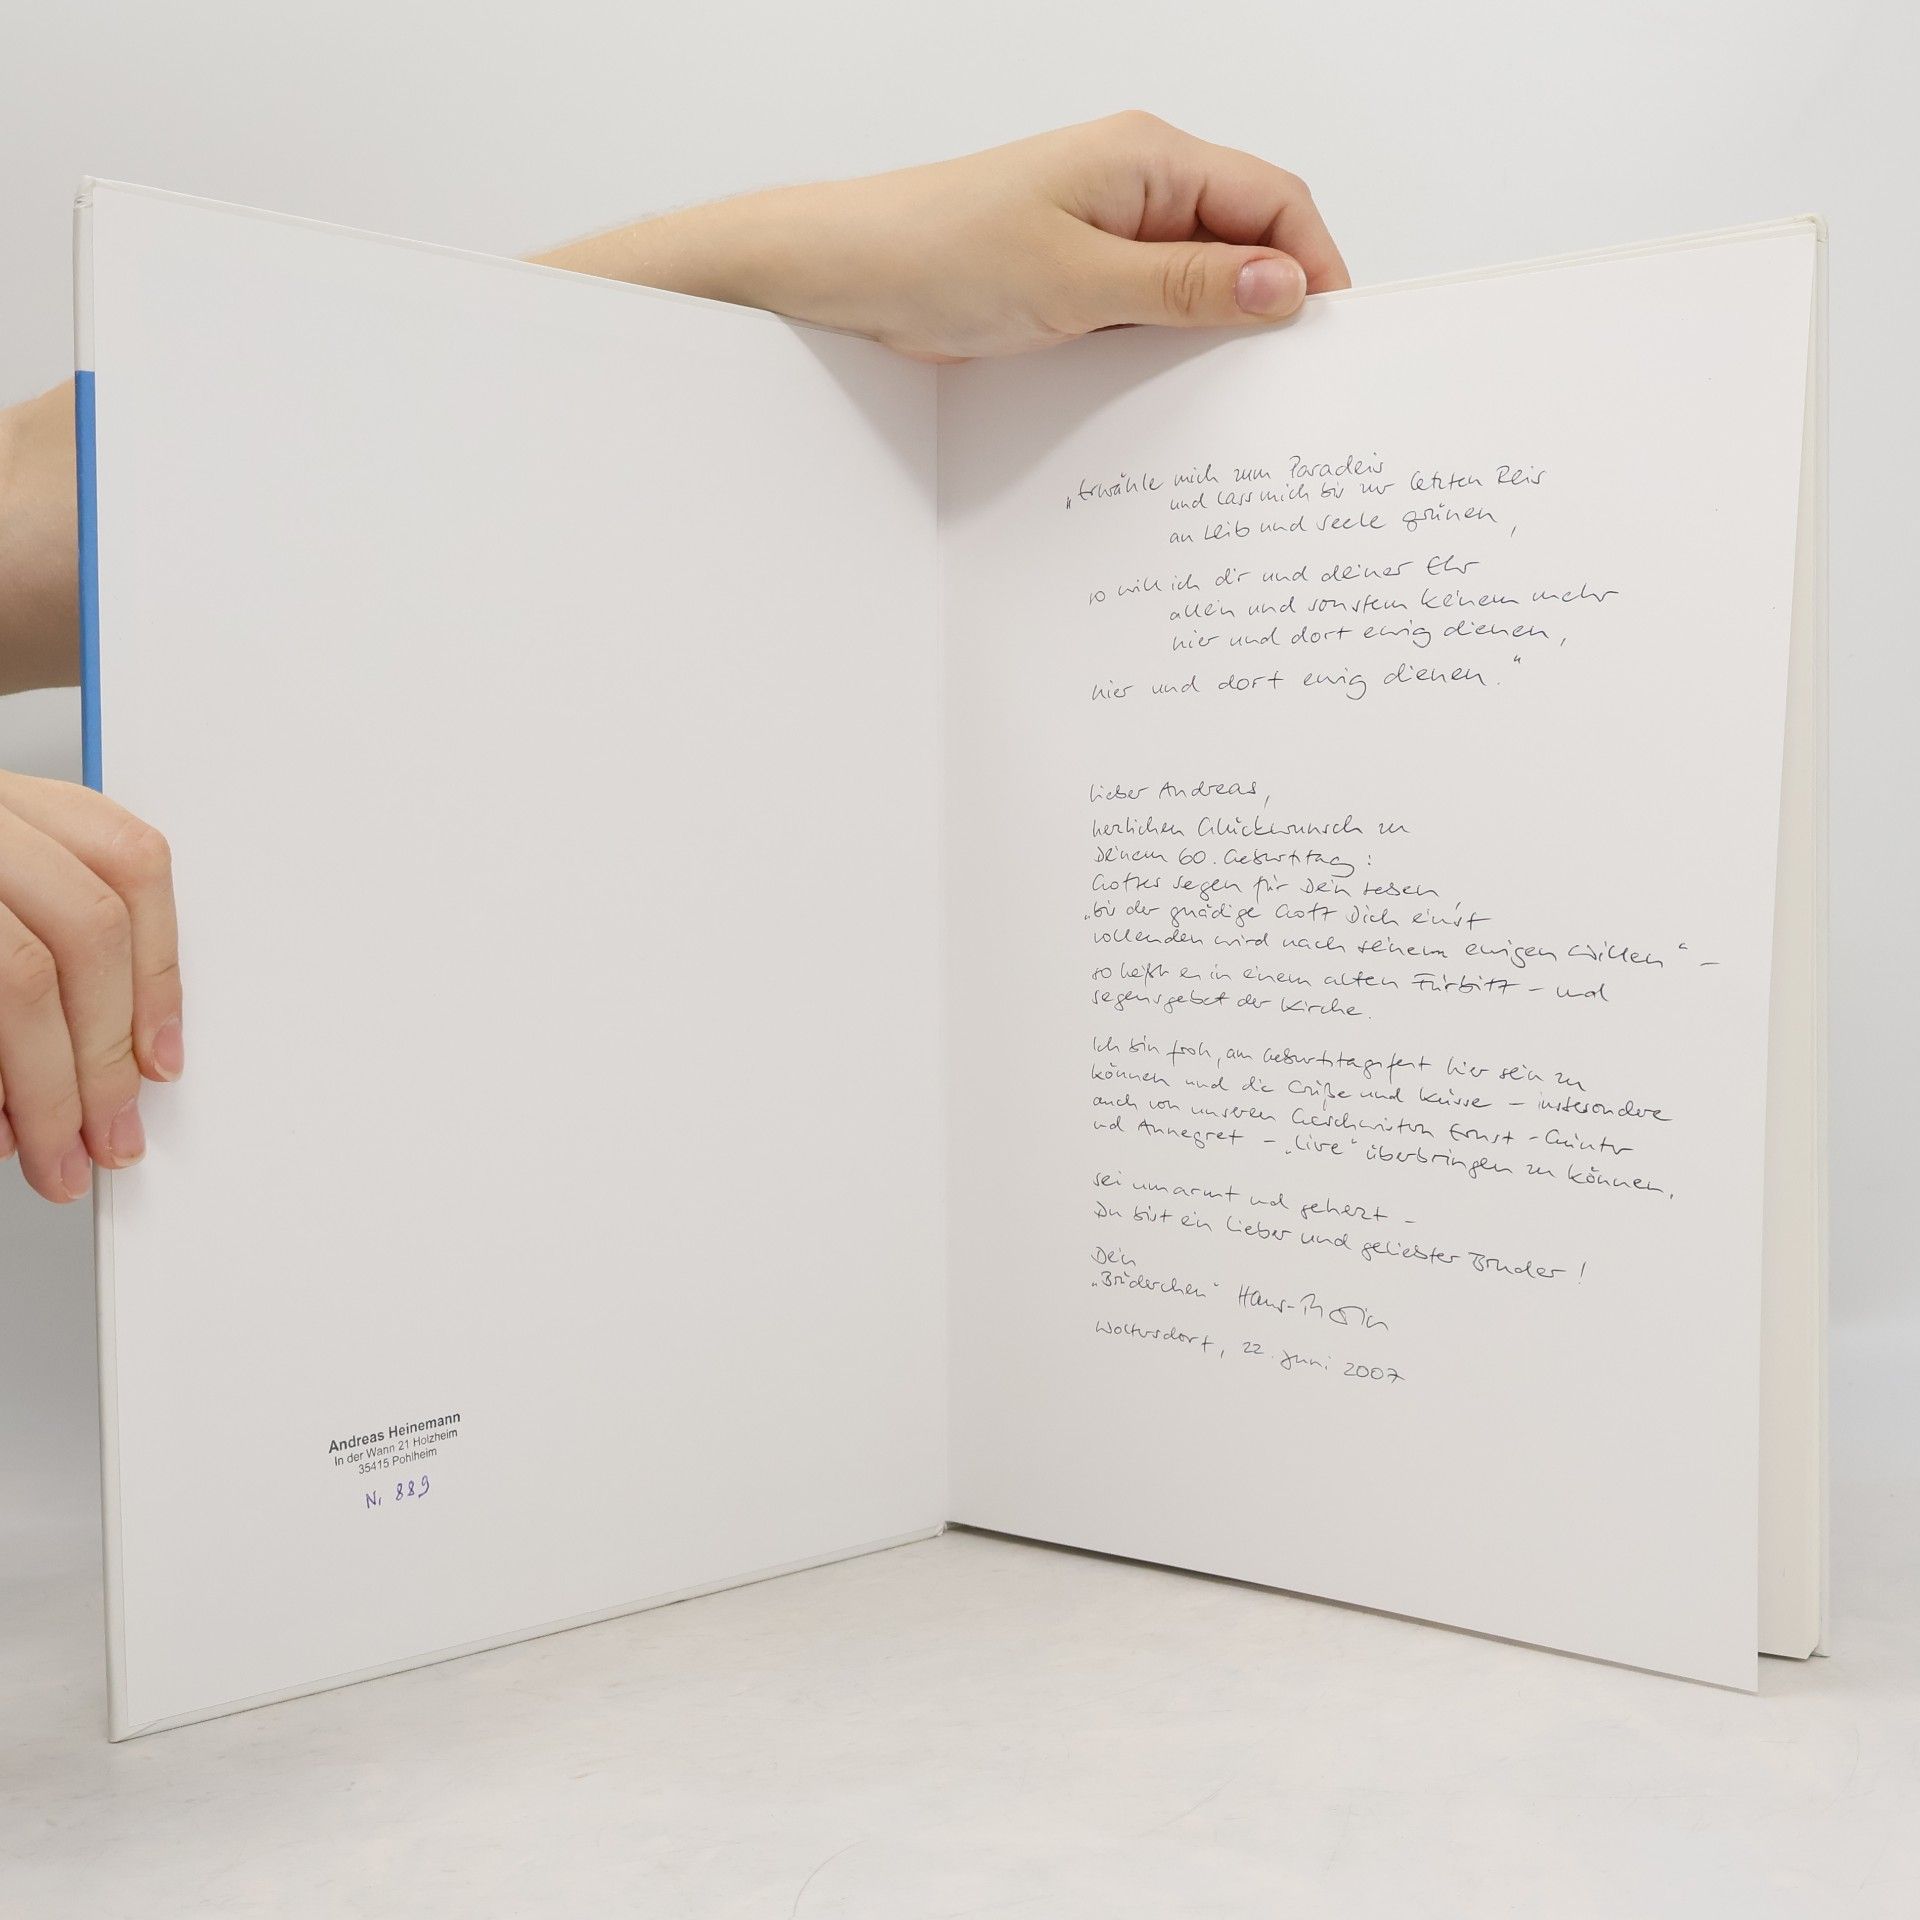 Andreas Heinemann
In der Wann 21 Holzheim
35415 Pohlheim
Nr 889
„Erwähle mich zum Paradeis
und lass mich bis zur letzten Reis
an Leib und Seele grünen,
so will ich dir und deiner Ehr
allein und sonstem keinem mehr
hier und dort ewig dienen,
hier und dort ewig dienen."
Lieber Andreas,
herzlichen Glückwunsch zu
Deinem 60. Geburtstag:
Gottes Segen für Dein Leben,
„bis der gnädige Gott Dich einst
vollenden wird nach seinem ewigen Willen" –
so heißt es in einem alten Fürbitt- und
Segensgebet der Kirche.
Ich bin froh, am Geburtstagsfest hier sein zu
können und die Grüße und Küsse – insbesondere
auch von unseren Geschwistern Ernst-Günter
und Annegret – „live" überbringen zu können.
Sei umarmt und geherzt –
Du bist ein lieber und geliebter Bruder!
Dein
„Brüderchen" Hans-
Woltersdorf, 22. Juni 2007